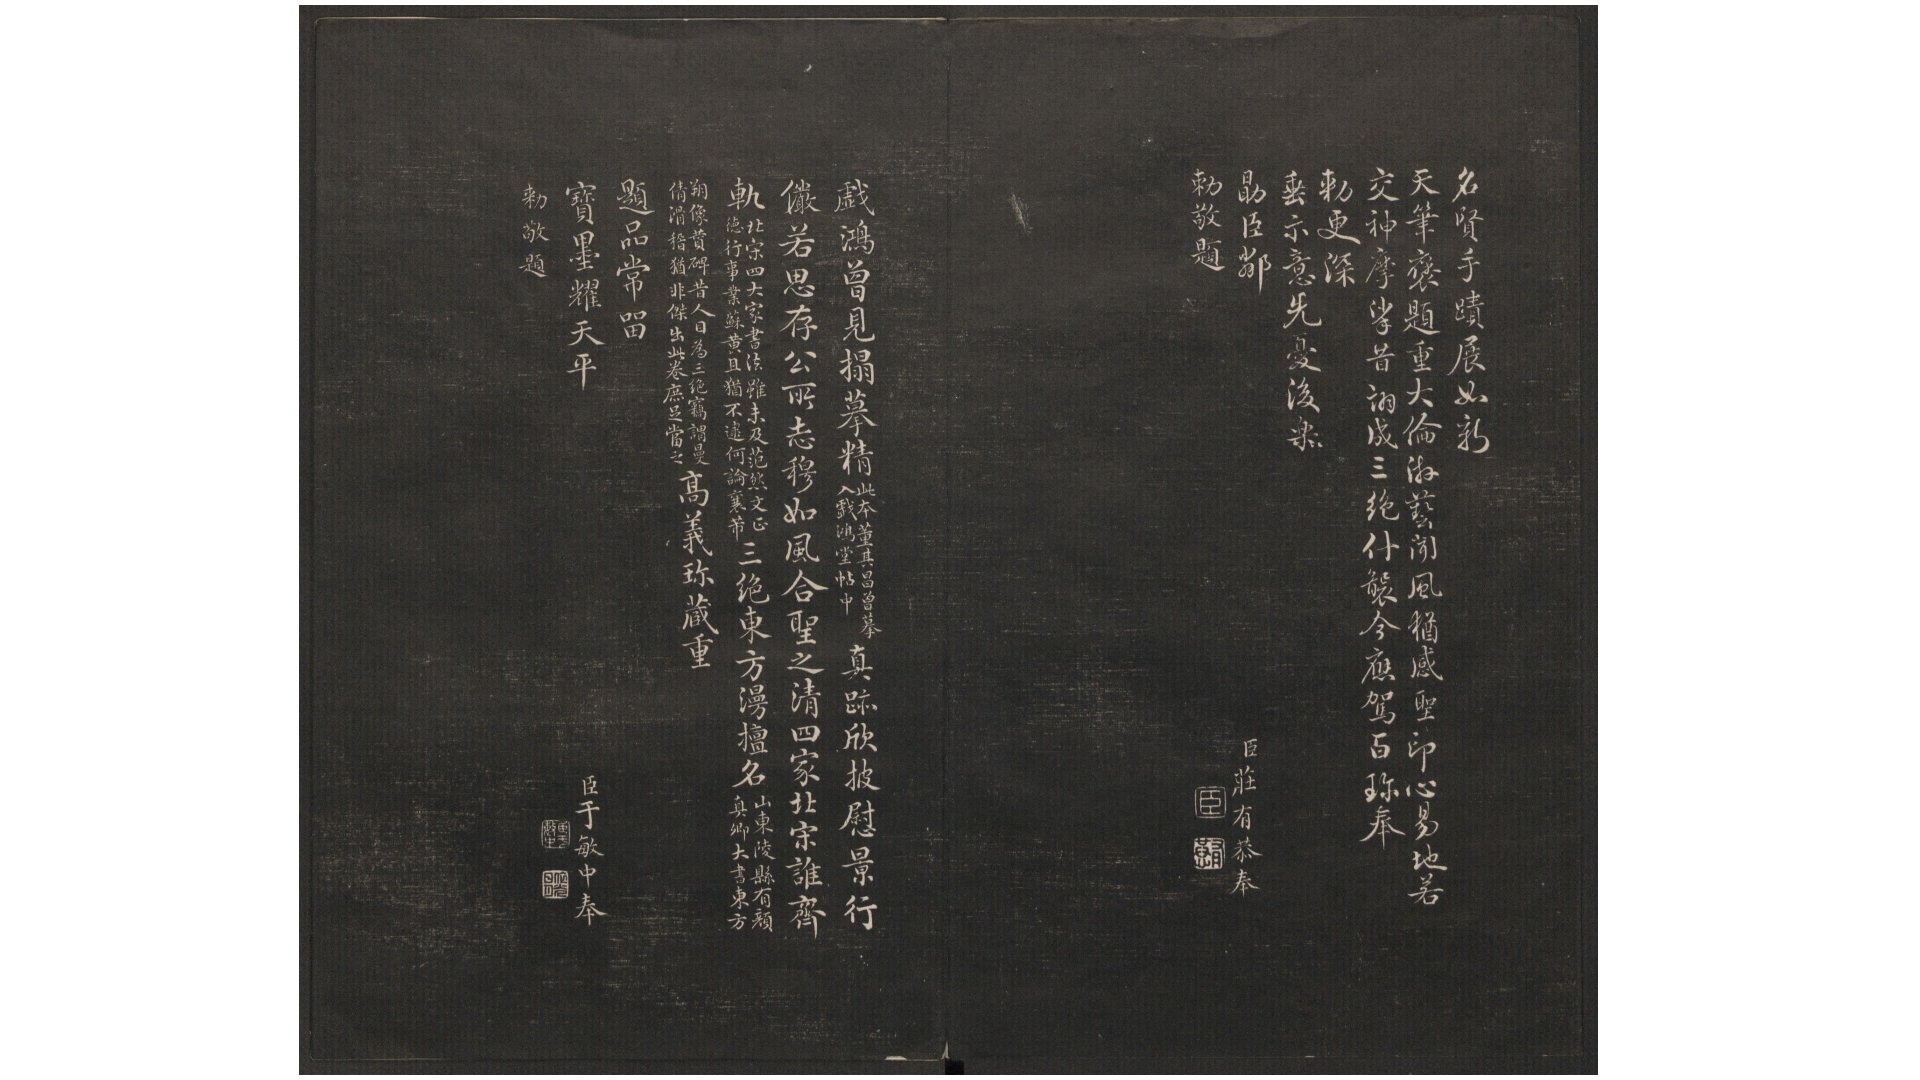 名賢手蹟展如新
天筆褒題重大倫游藝聞風猶感聖印心易地若
交神摩挲昔詡成三絕什襲今應駕百珍奉
勅更深
垂示意先憂後樂
勗臣鄰
勅敬題
臣莊有恭奉
戲鴻曾見搨摹精此本董其昌曾摹入戲鴻堂帖中真跡欣披慰景行
儼若思存公所志穆如風合聖之清四家北宋誰齊
軌北宋四大家書法雖未及范然文正德行事業蘇黃且猶不逮何論襄芾三絕東方漫擅名山東陵縣有顏真卿大書東方
朔像贊碑昔人目為三絕竊謂曼倩滑稽猶非傑出此卷庶足當之高義珎蔵重
題品常留
寶墨耀天平
勅敬題
臣于敏中奉